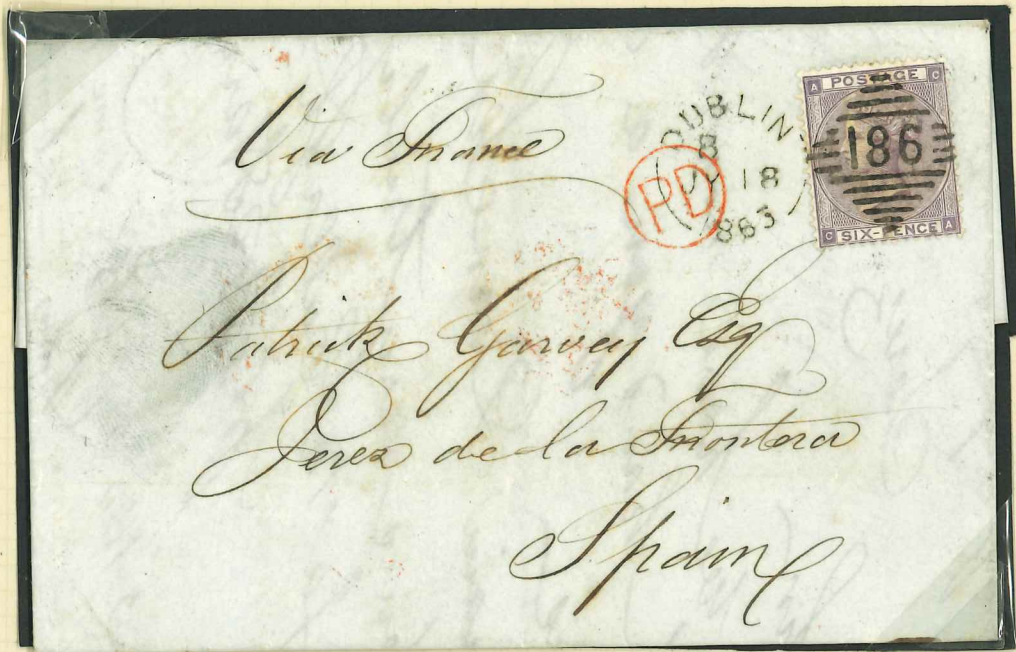 Via France
DUBLIN
8
JY 18
863
PD
A POSTAGE C
186
C SIX-PENCE A
Patrick Garvey Esq
Jerez de la Frontera
Spain